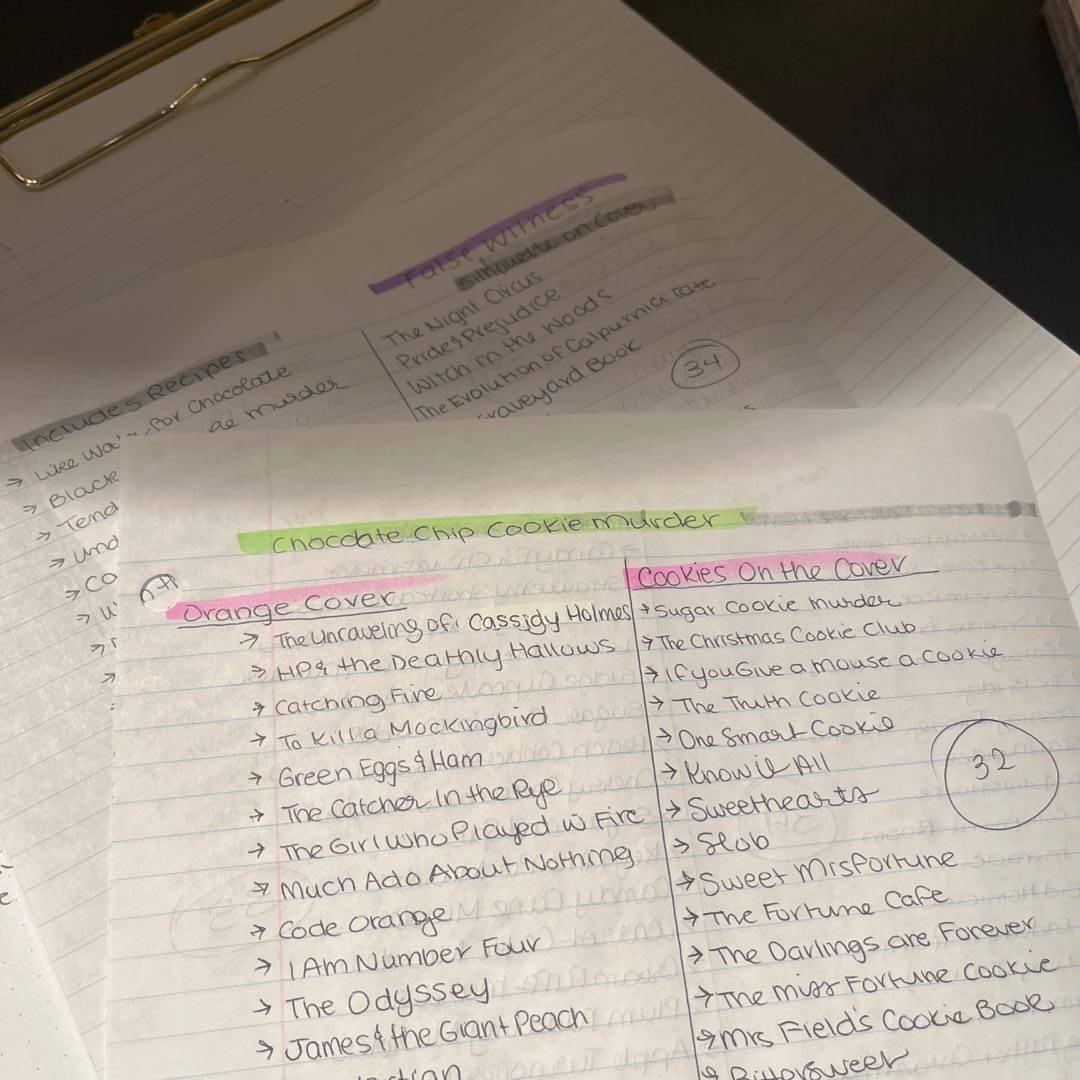 False Witness
Silhouette on Cover
The Night Circus
Pride & Prejudice
Witch in the Woods
The Evolution of Calpurnia Tate
Graveyard Book
34
Includes Recipes
→ Like Wa For Chocolate
murder
→ Black
→ Tend
→ Und
→ Co
Chocolate Chip Cookie Murder
Orange Cover
→ The Unraveling of Cassidy Holmes
→ HP & the Deathly Hallows
→ Catching Fire
→ To Kill a Mockingbird
→ Green Eggs & Ham
→ The Catcher In the Rye
→ The Girl Who Played w Fire
→ Much Ado About Nothing
→ Code Orange
→ I Am Number Four
→ The Odyssey
→ James & the Giant Peach
Cookies On the Cover
→ Sugar Cookie Murder
→ The Christmas Cookie Club
→ If you Give a mouse a Cookie
→ The Truth Cookie
→ One Smart Cookie
→ Know it All
→ Sweethearts
→ Slob
→ Sweet Misfortune
→ The Fortune Cafe
→ The Darlings are Forever
→ The Miss Fortune Cookie
→ Mrs Field's Cookie Book
→ Bittersweet
32